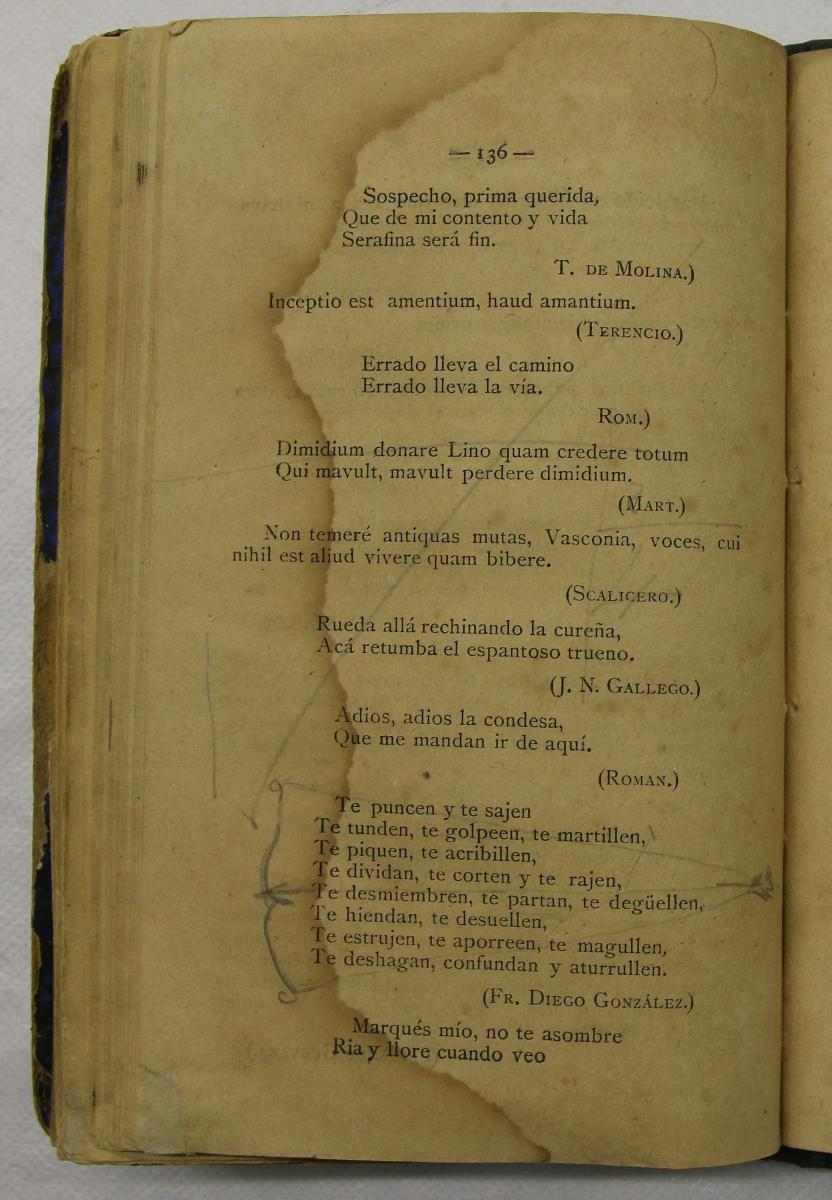 — 136 —
Sospecho, prima querida,
Que de mi contento y vida
Serafina será fin.
T. DE MOLINA.)
Inceptio est amentium, haud amantium.
(TERENCIO.)
Errado lleva el camino
Errado lleva la vía.
ROM.)
Dimidium donare Lino quam credere totum
Qui mavult, mavult perdere dimidium.
(MART.)
Non temeré antiquas mutas, Vasconia, voces, cui
nihil est aliud vivere quam bibere.
(SCALICERO.)
Rueda allá rechinando la cureña,
Acá retumba el espantoso trueno.
(J. N. GALLEGO.)
Adios, adios la condesa,
Que me mandan ir de aquí.
(ROMAN.)
Te puncen y te sajen
Te tunden, te golpeen, te martillen,
Te piquen, te acribillen,
Te dividan, te corten y te rajen,
Te desmiembren, te partan, te degüellen,
Te hiendan, te desuellen,
Te estrujen, te aporreen, te magullen,
Te deshagan, confundan y aturrullen.
(FR. DIEGO GONZÁLEZ.)
Marqués mío, no te asombre
Ria y llore cuando veo